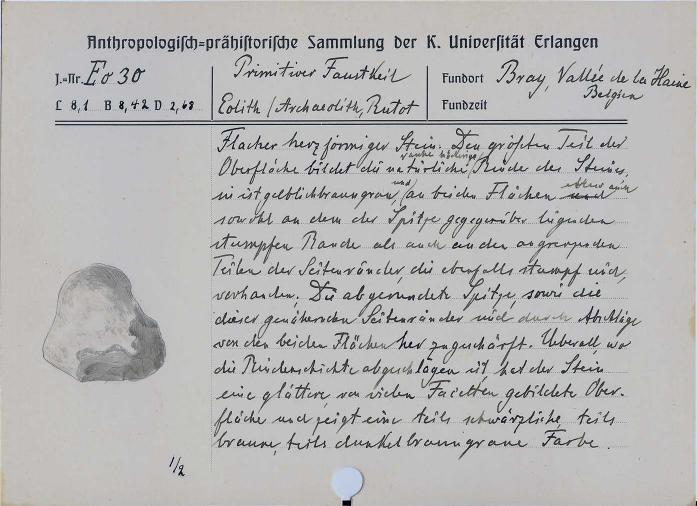 Anthropologisch-prähistorische Sammlung der K. Universität Erlangen
J.-Nr. Eo 30
L 8,1 B 8,42 D 2,68
Primitiver Faustkeil
Eolith / Archaeolith, Rutot
Fundort Bray, Vallée de la Haine
Belgien
Fundzeit
Flacher herzförmiger Stein. Den größten Teil der
rauhe höckrige
Oberfläche bildet die natürliche Rinde des Steines,
und eben auch
sie ist gelblichbraungrau, an beiden Flächen und
sowohl an dem der Spitze gegenüber liegenden
stumpfen Rande als auch an den angrenzenden
Teilen der Seitenränder, die ebenfalls stumpf sind,
vorhanden. Die abgerundete Spitze, sowie die
dieser genäherten Seitenränder sind durch Abschläge
von den beiden Flächen her zugeschärft. Ueberall, wo
die Rindenschichte abgeschlagen ist hat der Stein
eine glättere, von vielen Facetten gebildete Ober-
fläche und zeigt eine teils schwärzliche, teils
braune, teils dunkelbraungraue Farbe.
1/2